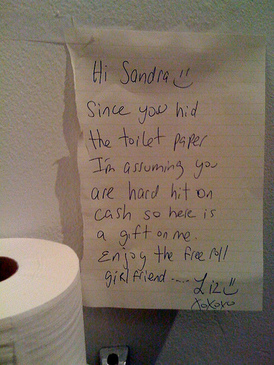 Hi Sandra
Since you hid
the toilet paper
I'm assuming you
are hard hit on
cash so here is
a gift on me.
Enjoy the free roll
girlfriend.... Liz
xoxoxo